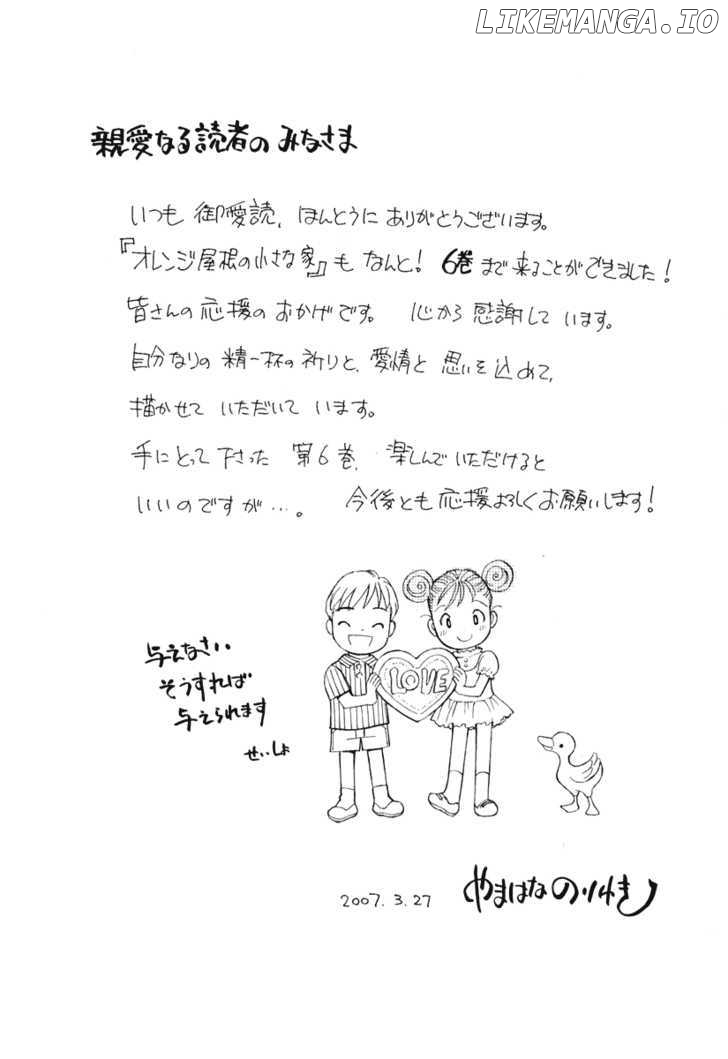 LIKEMANGA.IO
親愛なる読者のみなさま
いつも御愛読、ほんとうにありがとうございます。
『オレンジ屋根の小さな家』もなんと！6巻まで来ることができました！
皆さんの応援のおかげです。心から感謝しています。
自分なりの精一杯の祈りと、愛情と思いを込めて、
描かせていただいています。
手にとって下さった第6巻、楽しんでいただけると
いいのですが…。今後とも応援よろしくお願いします！
LOVE
与えなさい
そうすれば
与えられます
せいしょ
2007.3.27
やまはなのりゆき